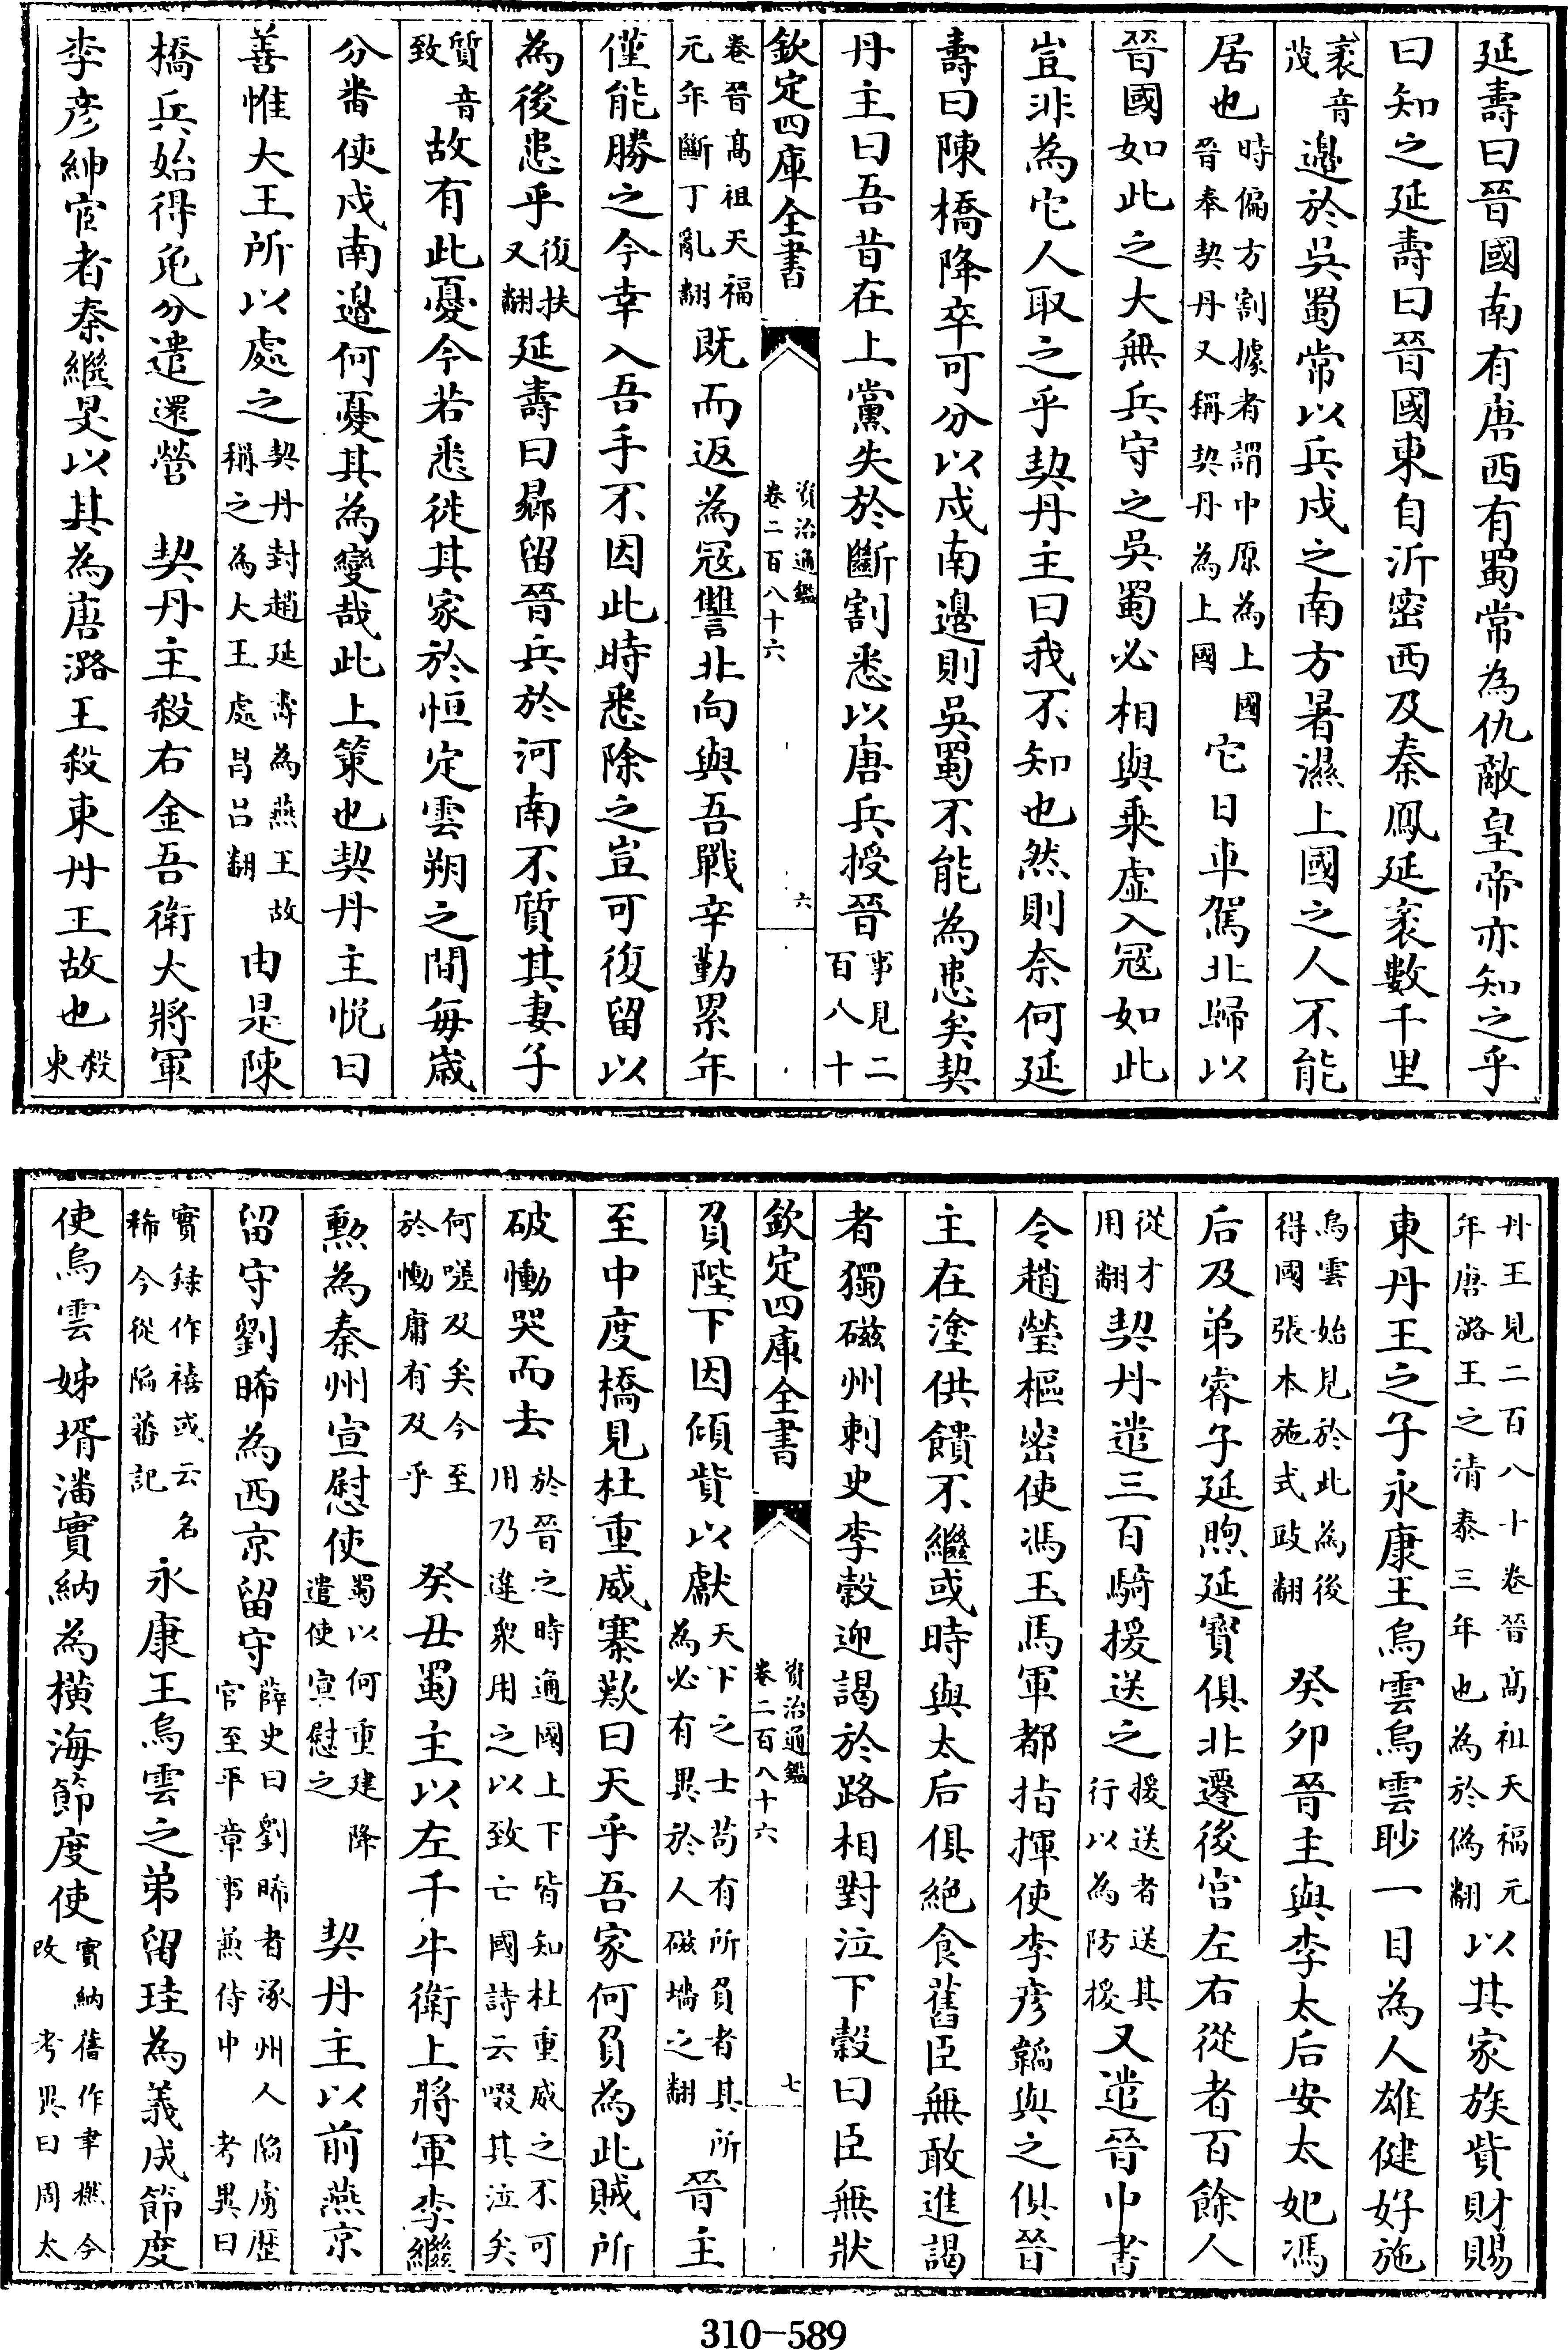 延壽曰晉國南有唐西有蜀常為仇敵皇帝亦知之乎
曰知之延壽曰晉國東自沂密西及秦鳳延袤數千里
袤音茂邊於吳蜀常以兵戍之南方暑濕上國之人不能
居也時偏方割據者謂中原為上國晉奉契丹又稱契丹為上國它日車駕北歸以
晉國如此之大無兵守之吳蜀必相與乘虛入冦如此
豈非為它人取之乎契丹主曰我不知也然則奈何延
壽曰陳橋降卒可分以戍南邊則吳蜀不能為患矣契
丹主曰吾昔在上黨失於斷割悉以唐兵授晉事見二百八十
欽定四庫全書 資治通鑑卷二百八十六 六
卷晉髙祖天福元年斷丁亂翻既而返為冦讐北向與吾戰辛勤累年
僅能勝之今幸入吾手不因此時悉除之豈可復留以
為後患乎復扶又翻延壽曰曏留晉兵於河南不質其妻子
質音致故有此憂今若悉徙其家於恒定雲朔之間每歲
分番使戍南邊何憂其為變哉此上策也契丹主悅曰
善惟大王所以處之契丹封趙延壽為燕王故稱之為大王處昌呂翻由是陳
橋兵始得免分遣還營 契丹主殺右金吾衛大將軍
李彥紳宦者秦繼旻以其為唐潞王殺東丹王故也殺東
丹王見二百八十卷晉髙祖天福元年唐潞王之清泰三年也為於偽翻以其家族貲財賜
東丹王之子永康王烏雲烏雲眇一目為人雄健好施
烏雲始見於此為後得國張本施式䜴翻 癸卯晉主與李太后安太妃馮
后及弟睿子延煦延寳俱北遷後宫左右從者百餘人
從才用翻契丹遣三百騎援送之援送者送其行以為防援又遣晉中書
令趙瑩樞密使馮玉馬軍都指揮使李彥韜與之俱晉
主在塗供饋不繼或時與太后俱絶食舊臣無敢進謁
者獨磁州刺史李穀迎謁於路相對泣下穀曰臣無狀
欽定四庫全書 資治通鑑卷二百八十六 七
負陛下因傾貲以獻天下之士苟有所負者其所為必有異於人磁墻之翻晉主
至中度橋見杜重威寨歎曰天乎吾家何負為此賊所
破慟哭而去於晉之時通國上下皆知杜重威之不可用乃違衆用之以致亡國詩云啜其泣矣
何嗟及矣今至於慟庸有及乎 癸丑蜀主以左千牛衛上將軍李繼
勲為秦州宣慰使蜀以何重建降遣使宣慰之 契丹主以前燕京
留守劉晞為西京留守薛史曰劉晞者涿州人陷虜歴官至平章事兼侍中 考異曰
實録作禧或云名稀今從陷蕃記永康王烏雲之弟留珪為義成節度
使烏雲姊壻潘實納為横海節度使實納舊作聿撚今改 考異曰周太
310-589